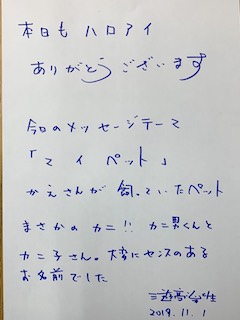 本日も ハロアイ
ありがとうございます
今日のメッセージテーマ
「マイペット」
かえさんが 飼っていたペット
まさかの カニ!! カニ男くんと
カニ子さん。大変にセンスのある
お名前でした
三遊亭
2019.11.1